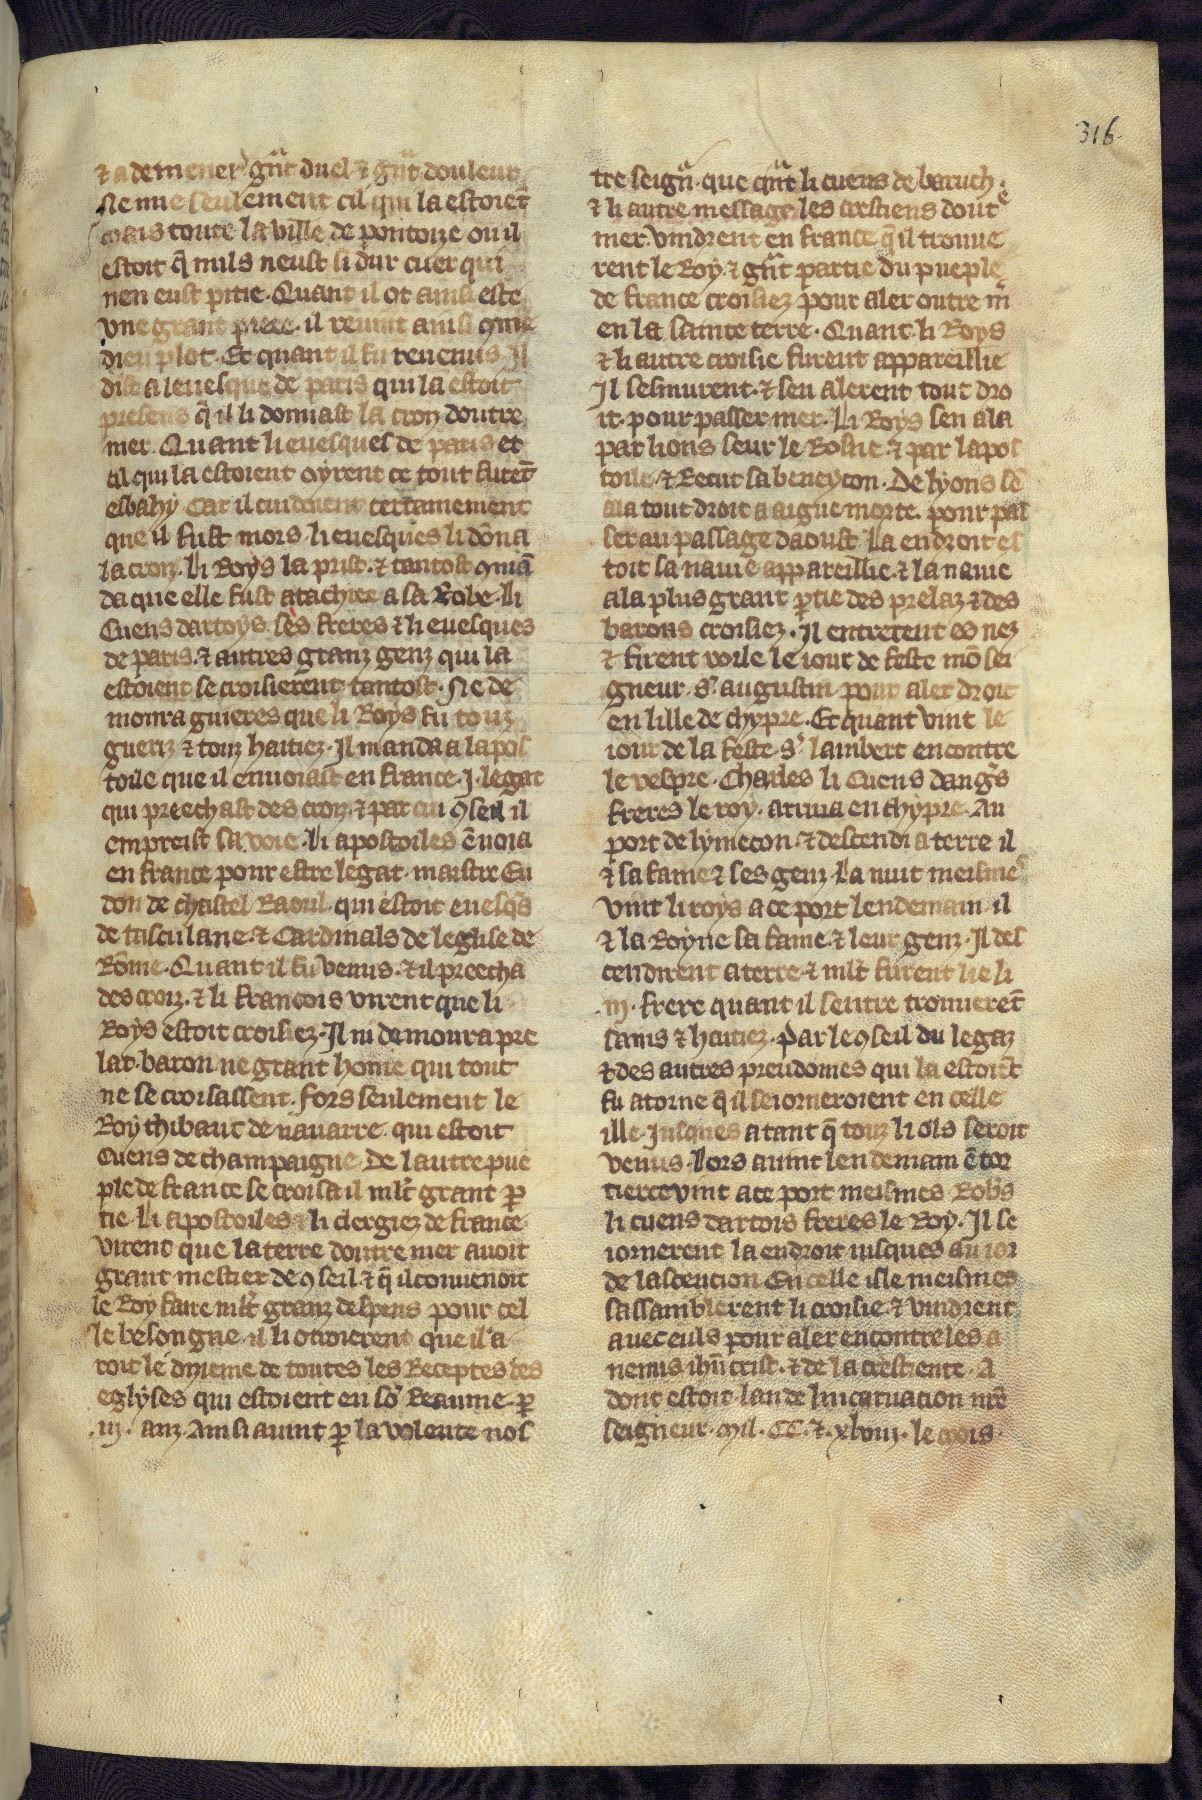 316
⁊ a demener gr̃nt duel ⁊ gr̃nt douleur
Ne mie seulement cil qui la estoiet̃
mais toute la ville de pontoize ou il
estoit q̃ nuls neust si dur cuer qui
nen eust pitie. Quant il ot ainsi este
vne grant piece. il reuint ainsi 9me
dieu plot. Et quant il fu reuenus. Il
dist a leuesque de paris qui la estoit
presens q̃ il li donnast la croiz doutre
mer. Quant li euesques de paris et
cil qui la estoient oyrent ce tout furet̃
esbahy Car il cuidoient certainement
que il fust mors. li euesques li dõna
la croiz. Li Roys la prist. ⁊ tantost 9mã
da que elle fust atachiee a sa Robe. li
Cuens dartoys. ses freres ⁊ li euesques
de paris. ⁊ autres granz genz qui la
estoient se croisierent tantost. Ne de
moura guieres que li Roys fu touz
gueriz ⁊ touz haitiez. Il manda a lapos
toile que il enuoiast en france .j. legat
qui preechast des croiz. ⁊ par cui 9seil il
empreist sa voie. Li apostoiles ẽuoia
en france pour estre legat. maistre Eu
don de chastel Raoul. qui estoit euesq̃s
de tusculane. ⁊ Cardinals de leglise de
Rõme. Quant il fu venus. ⁊ il preecha
des croiz. ⁊ li francois virent que li
Roys estoit croisiez. Il ni demoura pre
lat. baron ne grant home qui tout
ne se croisassent. fors seulement le
Roy thibaut de nauarre. qui estoit
Cuens de champaigne. De lautre pue
ple de france se croisa il ml̃t grant p̱
tie. Li apostoiles ⁊ li clergiez de france
virent que la terre doutre mer auoit
grant mestier de 9seil ⁊ q̃ il conuenoit
le Roy faire ml̃t granz despens pour cel
le besongne. il li otroierent que il a
roit le dizieme de toutes les Receptes des
eglyses qui estoient en sõ Reaume. p̱
.iij. anz. Ainsi auint p̱ la volente nos
tre seign̄. que qr̃nt li cuens de baruch.
⁊ li autre message les crestiens dout̾e
mer. vindrent en france q̃ il trouue
rent le Roy. ⁊ gr̃nt partie du pueple
de france croisiez pour aler outre m̃
en la sainte terre. Quant li Roys
⁊ li autre croisie furent appareillie
Il sesmurent. ⁊ sen alerent tout dro
it. pour passer mer. Li Roys sen ala
par lions seur le Rosne ⁊ par lapos
toile / ⁊ Recut sa beneycon. De lyons sẽ
ala tout droit a aigue morte. pour pas
ser au passage daoust La endroit es
toit sa nauie appareillie. ⁊ la nauie
a la plus grant p̱tie des prelaz ⁊ des
barons croisiez. Il entrerent es nez
⁊ firent voile le iour de feste mõ sei
gneur. s̾. augustin. pour aler droit
en lille de chypre. Et quant vint le
iour de la feste. s̾. lambert encontre
le vespre. Charles li Cuens dang̾s
freres le roy. ariua en chypre. Au
port de lymecon. ⁊ descendi a terre il
⁊ sa fame ⁊ ses genz. La nuit meisme
vint li roys a ce port lendemain. il
⁊ la Royne sa fame. ⁊ leur genz. Il des
cendirent a terre ⁊ ml̃t furent lie li
.iij. frere quant il sentre trouueret̃
sains ⁊ haitiez. Par le 9seil du legaz
⁊ des autres preudomes qui la estoiet̃
fu atorne q̃ il seiorneroient en celle
ille. Jusques a tant q̃ touz li ols seroit
venus. Lors auint lendemain ẽtor
tierce vint a ce port meismes Rob̾s
li cuens dartois freres le Roy. Il se
iornerent la endroit iusques au ior
de lascencion En celle isle meismes
sassamblerent li croisie. ⁊ vindrent
auec euls pour aler encontre les a
nemis ih̃u crist. ⁊ de la crestiente. A
dont estoit. lan de lincarnacion nr̃e
seigneur. Mil. CC. ⁊. xlviij. le mois